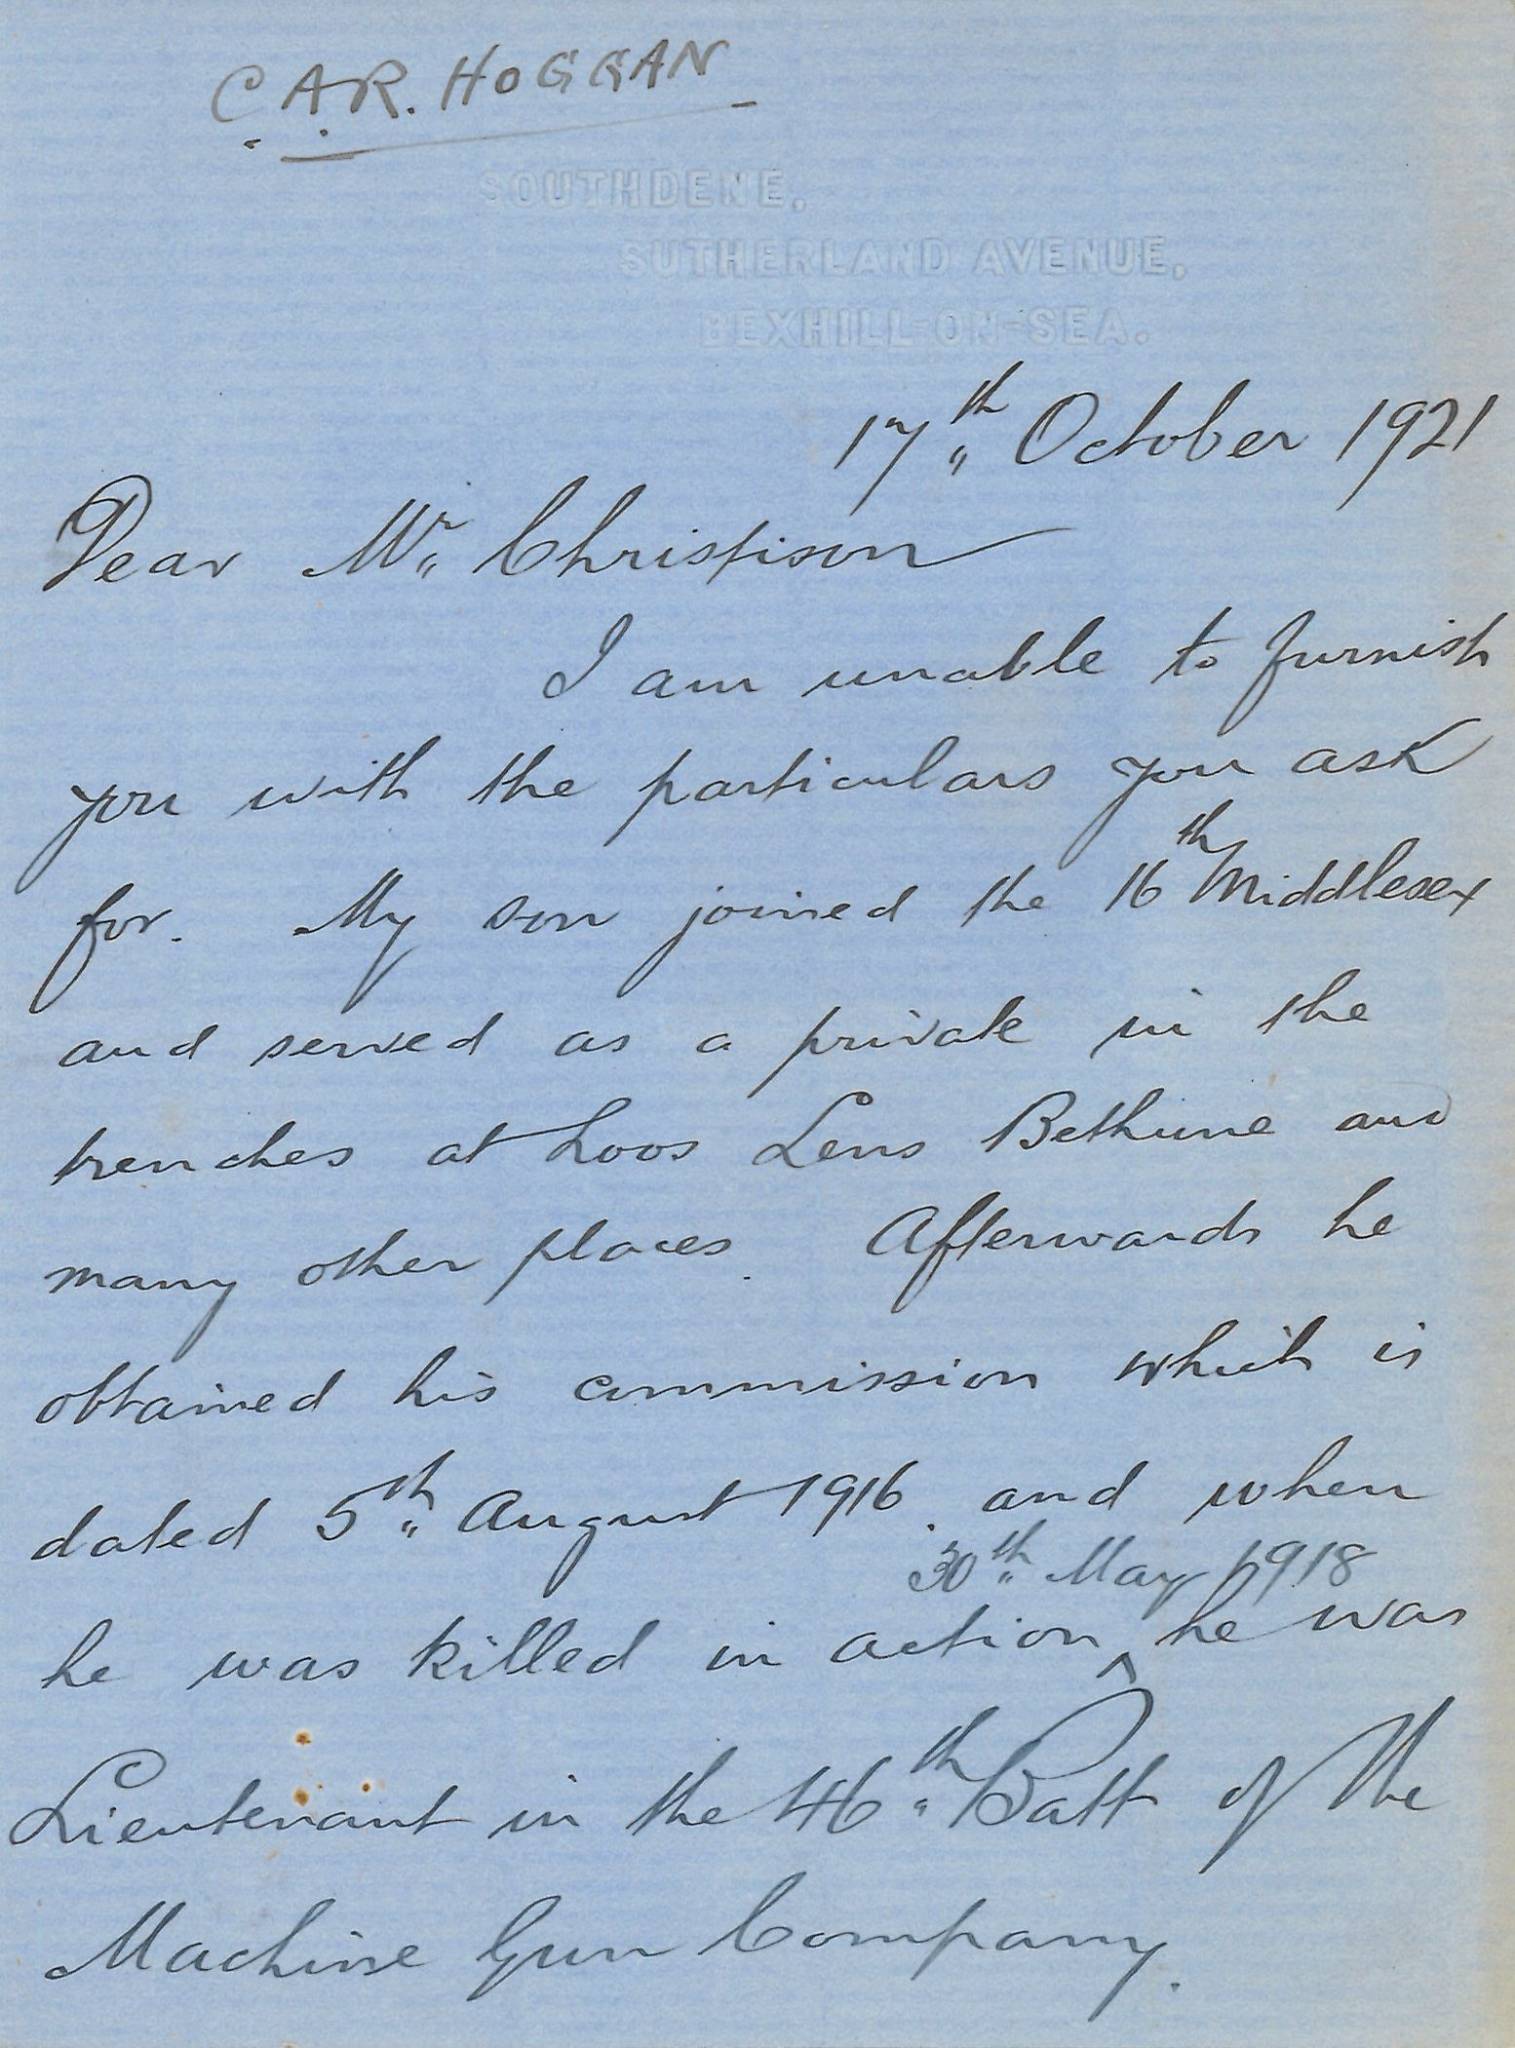 C.A.R. HOGGAN
SOUTHDENE,
SUTHERLAND AVENUE,
BEXHILL-ON-SEA.
17th October 1921
Dear Mr Christison
I am unable to furnish
you with the particulars you ask
for. My son joined the 16th Middlesex
and served as a private in the
trenches at Loos Lens Bethune and
many other places. Afterwards he
obtained his commission which is
dated 5th August 1916. and when
30th May 1918
he was killed in action ^ he was
Lieutenant in the 46th Batt of the
Machine Gun Company.